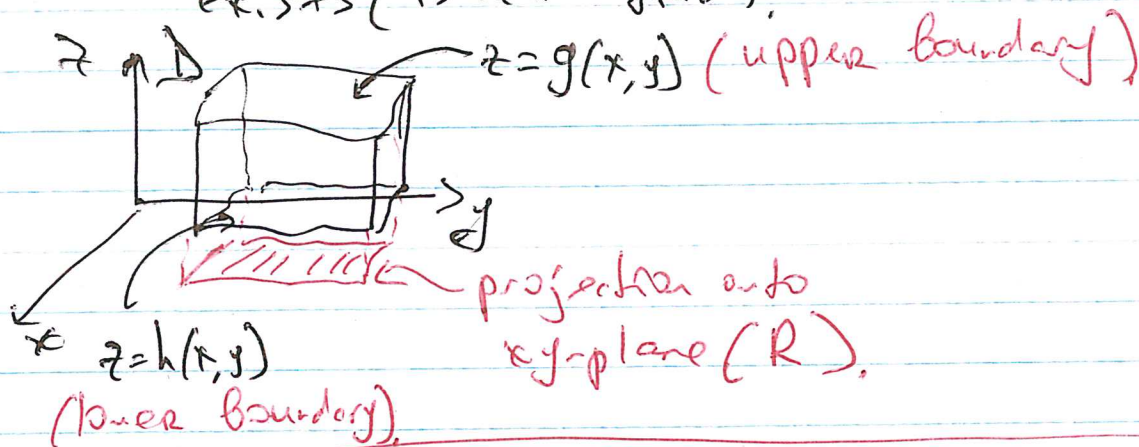 z D z = g(x,y) (upper boundary)
y
projection onto
x z = h(x,y) xy-plane (R).
(lower boundary).